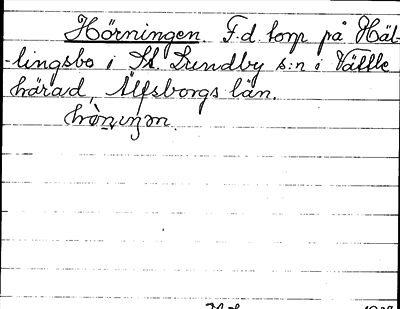 Hörningen F.d. torp på Häl-
-lingsbo i St. Lundby s:n i Vättle
härad, Älfsborgs län.